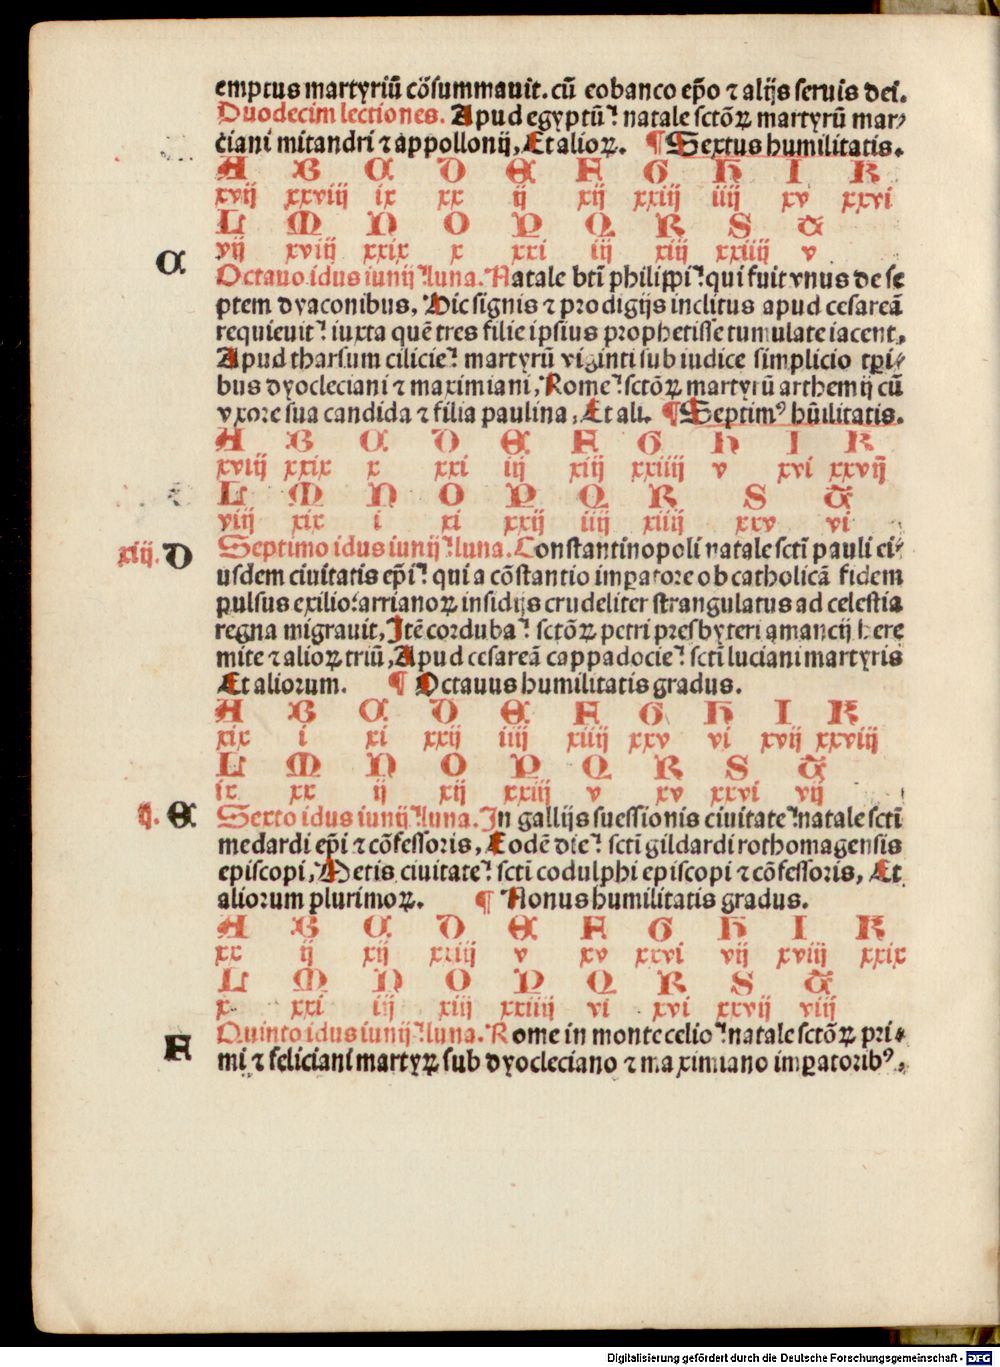 emptus martyriū cōsummauit. cū eobanco ep̄o ⁊ alijs seruis dei.
Duodecim lectiones. Apud egyptū: natale sctōꝝ martyrū mar/
ciani nitandri ⁊ appollonij, Et alioꝝ. ¶ Sextus humilitatis.
A B C D E F G H I K
xvij xxviij ix xx ij xij xxiij iiij xv xxvi
L M N O P Q R S T
vij xviij xxix x xxi iij xiij xxiiij v
C
Octauo idus iunij: luna. Natale bti philippi: qui fuit vnus de se
ptem dyaconibus, Hic signis ⁊ prodigijs inclitus apud cesareā
requieuit: iuxta quē tres filie ipsius prophetisse tumulate iacent,
Apud tharsum cilicie: martyrū viginti sub iudice simplicio tpri/
bus dyocleciani ⁊ maximiani, Rome: sctōꝝ martyrū arthemij cū
vxore sua candida ⁊ filia paulina, Et ali. ¶ Septimꝰ hūilitatis.
A B C D E F G H I K
xviij xxix x xxi iij xiij xxiiij v xvi xxvij
L M N O P Q R S T
viij xix i xi xxij iiij xiiij xxv vi
xiij. D
Septimo idus iunij: luna. Constantinopoli natale scti pauli ei/
usdem ciuitatis ep̄i: qui a cōstantio imperatore ob catholicā fidem
pulsus exilio: arrianoꝝ insidijs crudeliter strangulatus ad celestia
regna migrauit, Itē corduba: sctōꝝ petri presbyteri amancij here
mite ⁊ alioꝝ triū, Apud cesareā cappadocie: scti luciani martyris
Et aliorum. ¶ Octauus humilitatis gradus.
A B C D E F G H I K
xix i xi xxij iiij xiiij xxv vi xvij xxviij
L M N O P Q R S T
ix xx ij xij xxiij v xv xxvi vij
ij. E
Sexto idus iunij: luna. In gallijs suessionis ciuitate: natale scti
medardi ep̄i ⁊ cōfessoris, Eodē die: scti gildardi rothomagensis
episcopi, Metis ciuitate: scti codulphi episcopi ⁊ cōfessoris, Et
aliorum plurimoꝝ. ¶ Nonus humilitatis gradus.
A B C D E F G H I K
xx ij xij xxiij v xv xxvi vij xviij xxix
L M N O P Q R S T
x xxi iij xiij xxiiij vi xvi xxvij viij
F
Quinto idus iunij: luna. Rome in monte celio: natale sctōꝝ pri/
mi ⁊ feliciani martyꝝ sub dyocleciano ⁊ maximiano imperatoribꝰ,
Digitalisierung gefördert durch die Deutsche Forschungsgemeinschaft - DFG